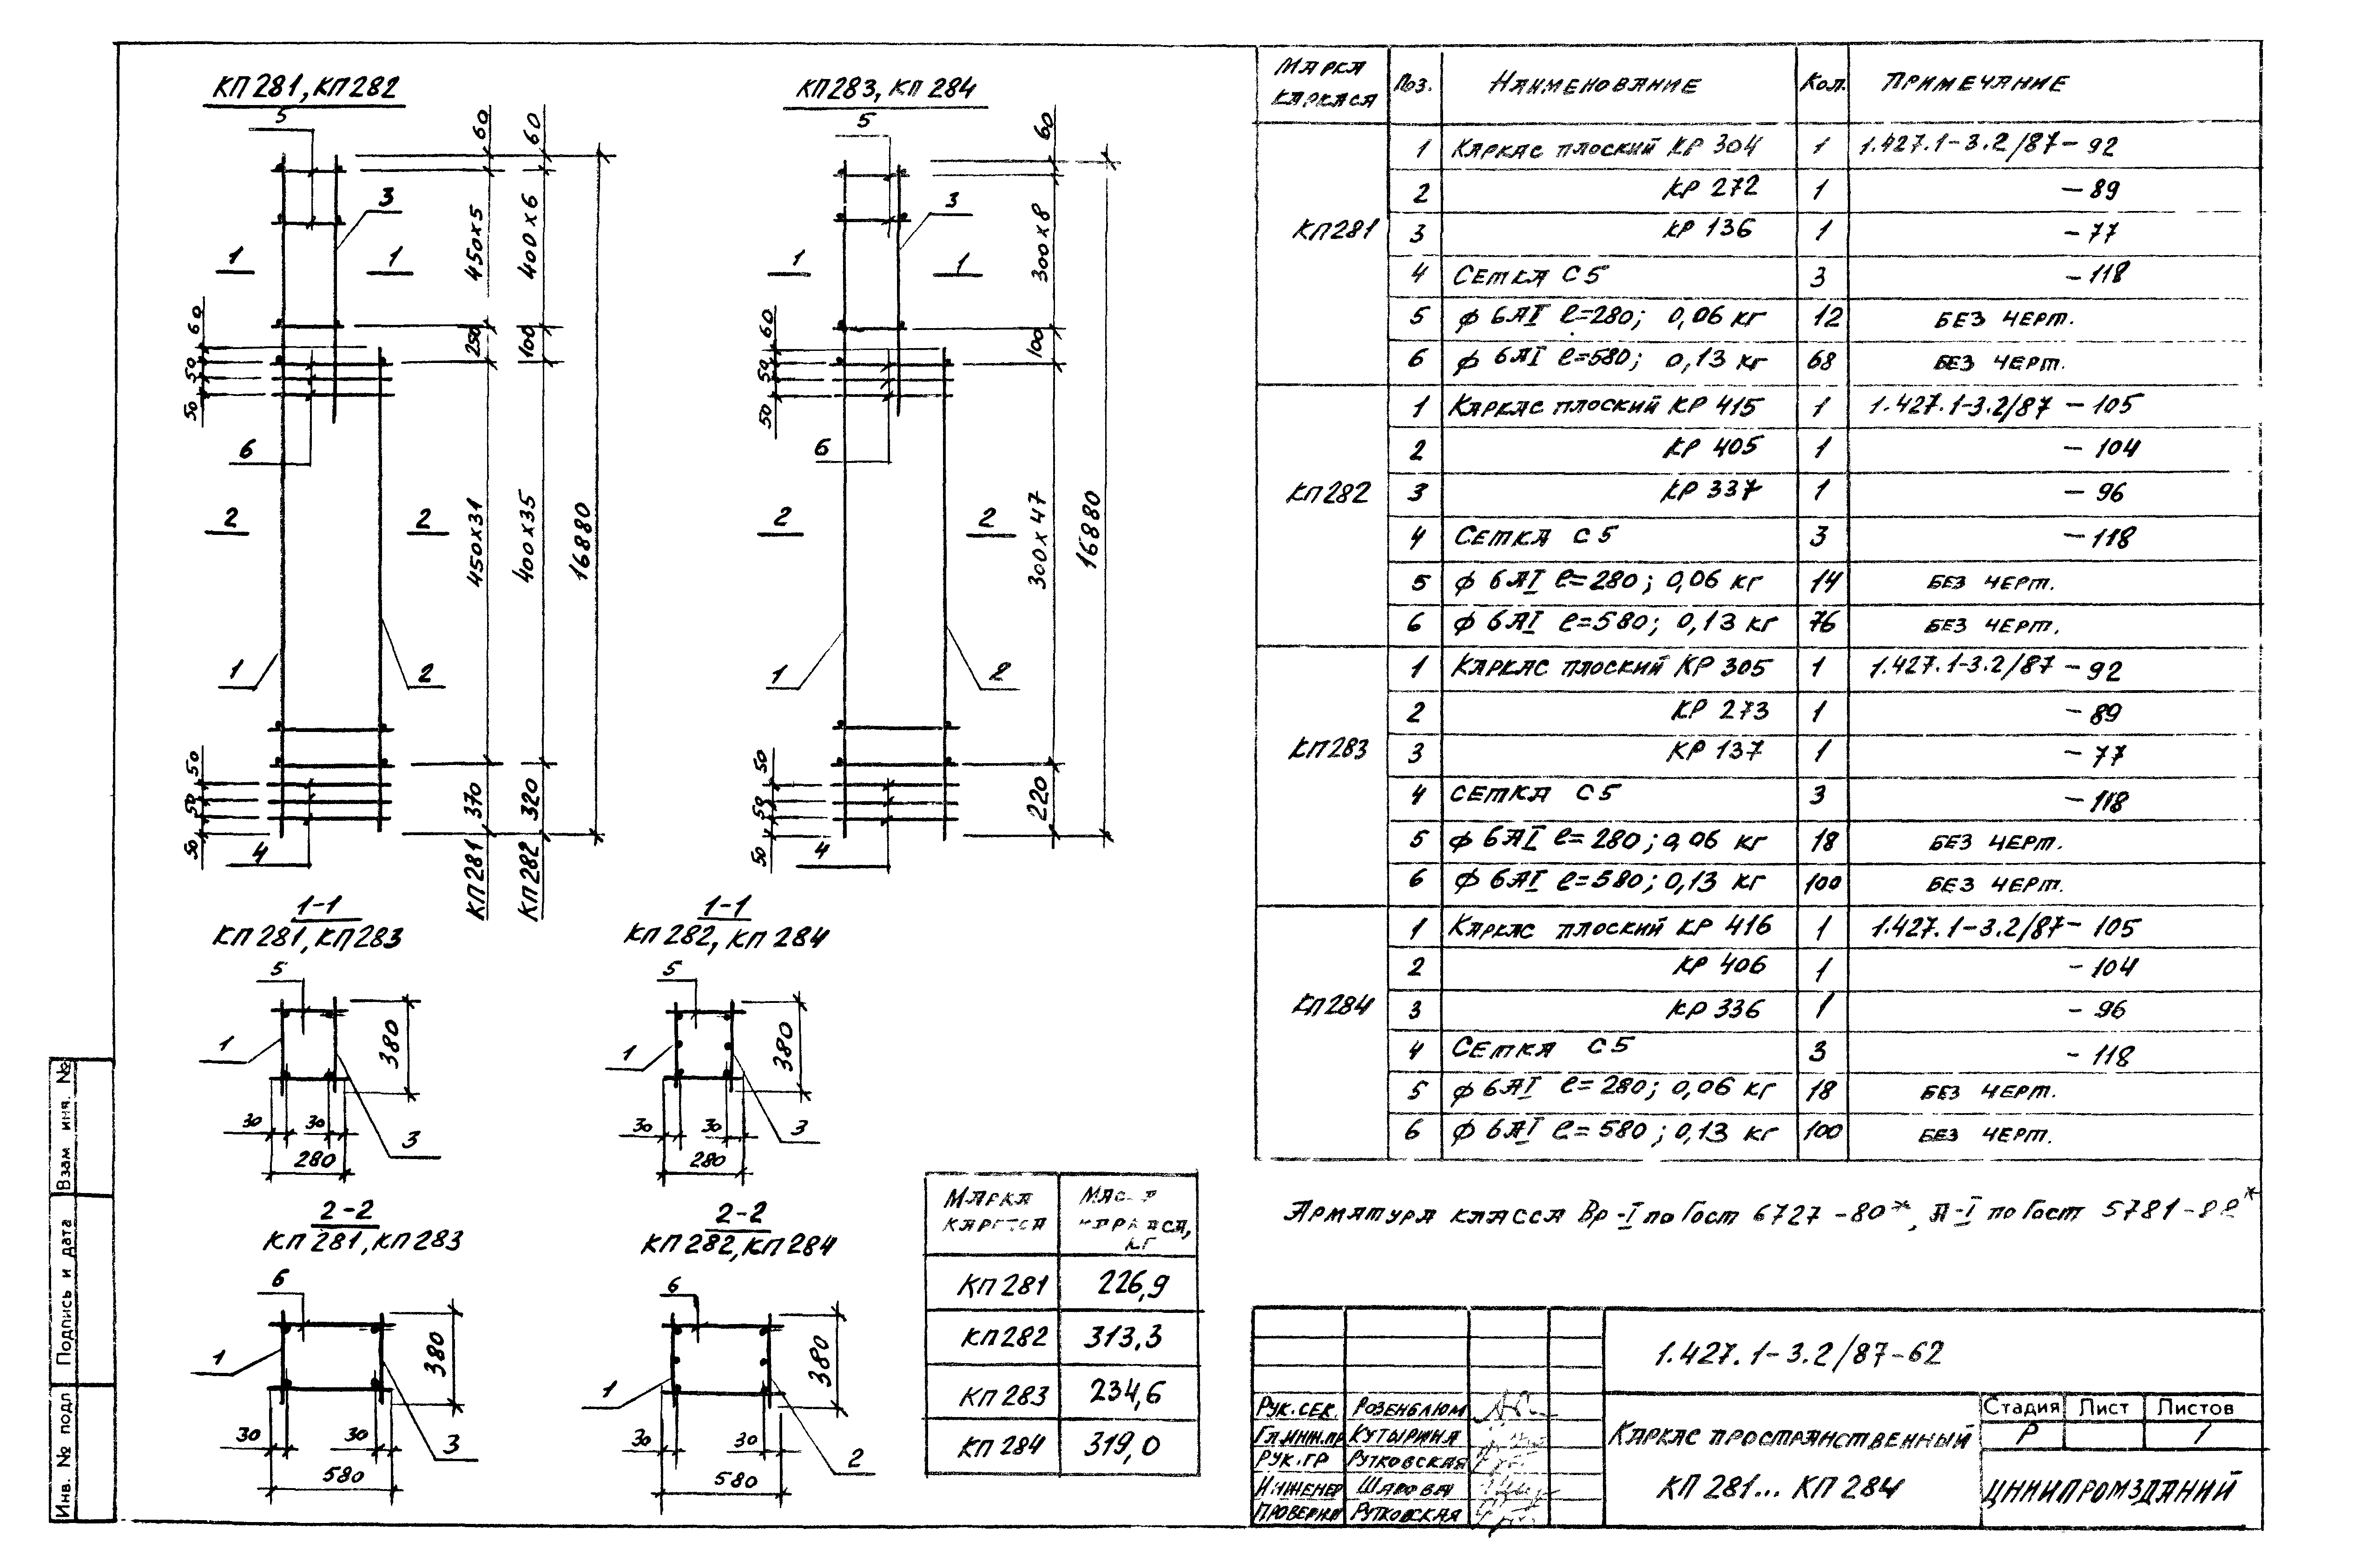 КП281, КП282
5
60
60
3
450х5
400х6
1
1
60
50
50
250
100
6
2
2
450х31
400х35
16880
1
2
50
50
50
370
320
4
КП281
КП282
КП283, КП284
5
60
3
300х8
1
1
60
50
50
100
6
2
2
300х47
16880
1
2
50
50
50
220
4
1-1
КП281, КП283
5
1
380
30
30
3
280
1-1
КП282, КП284
5
1
380
30
30
3
280
2-2
КП281, КП283
6
1
380
30
30
3
580
2-2
КП282, КП284
6
1
380
30
30
2
580
Марка каркаса Поз. Наименование Кол. Примечание
КП281
1 Каркас плоский КР 304 1 1.427.1-3.2/87-92
2 КР 272 1 -89
3 КР 136 1 -77
4 Сетка С5 3 -118
5 ф 6АI ℓ=280; 0,06 кг 12 без черт.
6 ф 6АI ℓ=580; 0,13 кг 68 без черт.
КП282
1 Каркас плоский КР 415 1 1.427.1-3.2/87-105
2 КР 405 1 -104
3 КР 337 1 -96
4 Сетка С5 3 -118
5 ф 6АI ℓ=280; 0,06 кг 14 без черт.
6 ф 6АI ℓ=580; 0,13 кг 76 без черт.
КП283
1 Каркас плоский КР 305 1 1.427.1-3.2/87-92
2 КР 273 1 -89
3 КР 137 1 -77
4 Сетка С5 3 -118
5 ф 6АI ℓ=280; 0,06 кг 18 без черт.
6 ф 6АI ℓ=580; 0,13 кг 100 без черт.
КП284
1 Каркас плоский КР 416 1 1.427.1-3.2/87-105
2 КР 406 1 -104
3 КР 336 1 -96
4 Сетка С5 3 -118
5 ф 6АI ℓ=280; 0,06 кг 18 без черт.
6 ф 6АI ℓ=580; 0,13 кг 100 без черт.
Марка каркаса
Масса каркаса, кг
КП281 226,9
КП282 313,3
КП283 234,6
КП284 319,0
Арматура класса Вр-I по Гост 6727-80*, А-I по Гост 5781-82*
1.427.1-3.2/87-62
Рук.сек. Розенблюм
Гл.инж.пр Кутырина
Рук.гр Рутковская
Инженер Шарова
Проверил Рутковская
Каркас пространственный
КП 281... КП 284
Стадия Лист Листов
Р 1
ЦНИИПРОМЗДАНИЙ
Взам инв. №
Подпись и дата
Инв. № подл